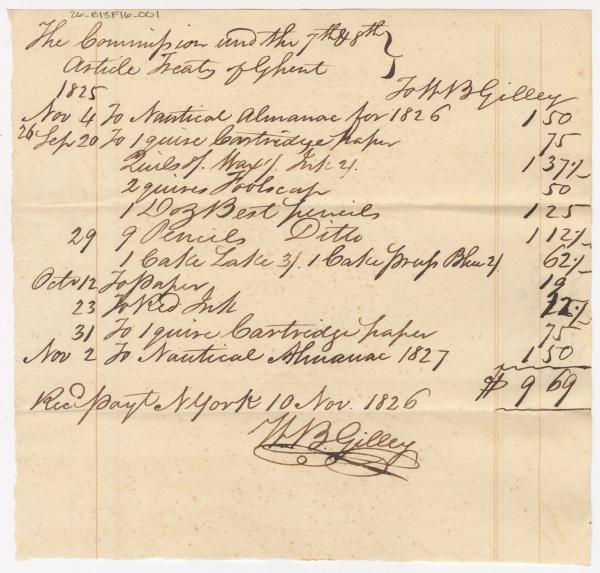 26-B15F16-001
The Commission und the 7th & 8th }
Article Treaty of Ghent
To W B Gilley
1825
Nov 4 To Nautical Almanac for 1826 1 50
26 Sep 20 To 1 quire Cartridge paper 75
Quils 5/. Wax 4/. Ink 2/. 1 37½
2 quires Foolscap 50
1 Doz Best pencils 1 25
29 9 Pencils Ditto 1 12½
1 Cake Lake 3/. 1 Cake prus Blue 2/. 62½
Octr 12 To paper 19
23 To Red Ink 22½
31 To 1 quire Cartridge paper 75
Nov 2 To Nautical Almanac 1827 1 50
$ 9 69
Recd payt N York 10 Nov. 1826
W. B. Gilley